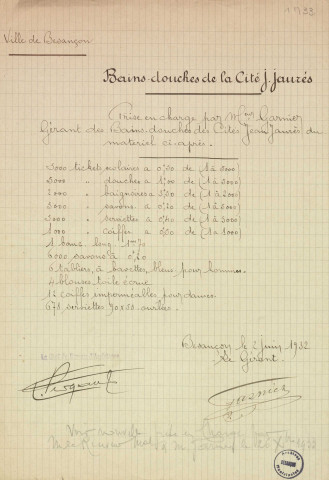 1933
Ville de Besançon
Bains-douches de la Cité J. Jaurès
Prise en charge par Mme Garnier
Gérant des Bains-douches des Cités Jean Jaurès du
matériel ci-après.
3000 tickets scolaires à 0,50 de (1 à 3000)
2000 " douches à 1,00 de (1 à 2000)
2000 " baignoires à
3000 " savons à 0,20 de (1 à 3000)
3000 " serviettes à 0,40 de (1 à 3000)
1000 " coiffes à 0,50 de (1 à 1000)
1 banc long
6000 savons à
6 tabliers, à bavettes, bleus pour hommes.
4 blouses, toile écrue
12 coiffes imperméables pour dames.
678 serviettes 90 x 50 ourlées.
Besançon le 2 juin 1932
Le Gérant.
Garnier
Voir nouvelle prise en charge
BESANÇON